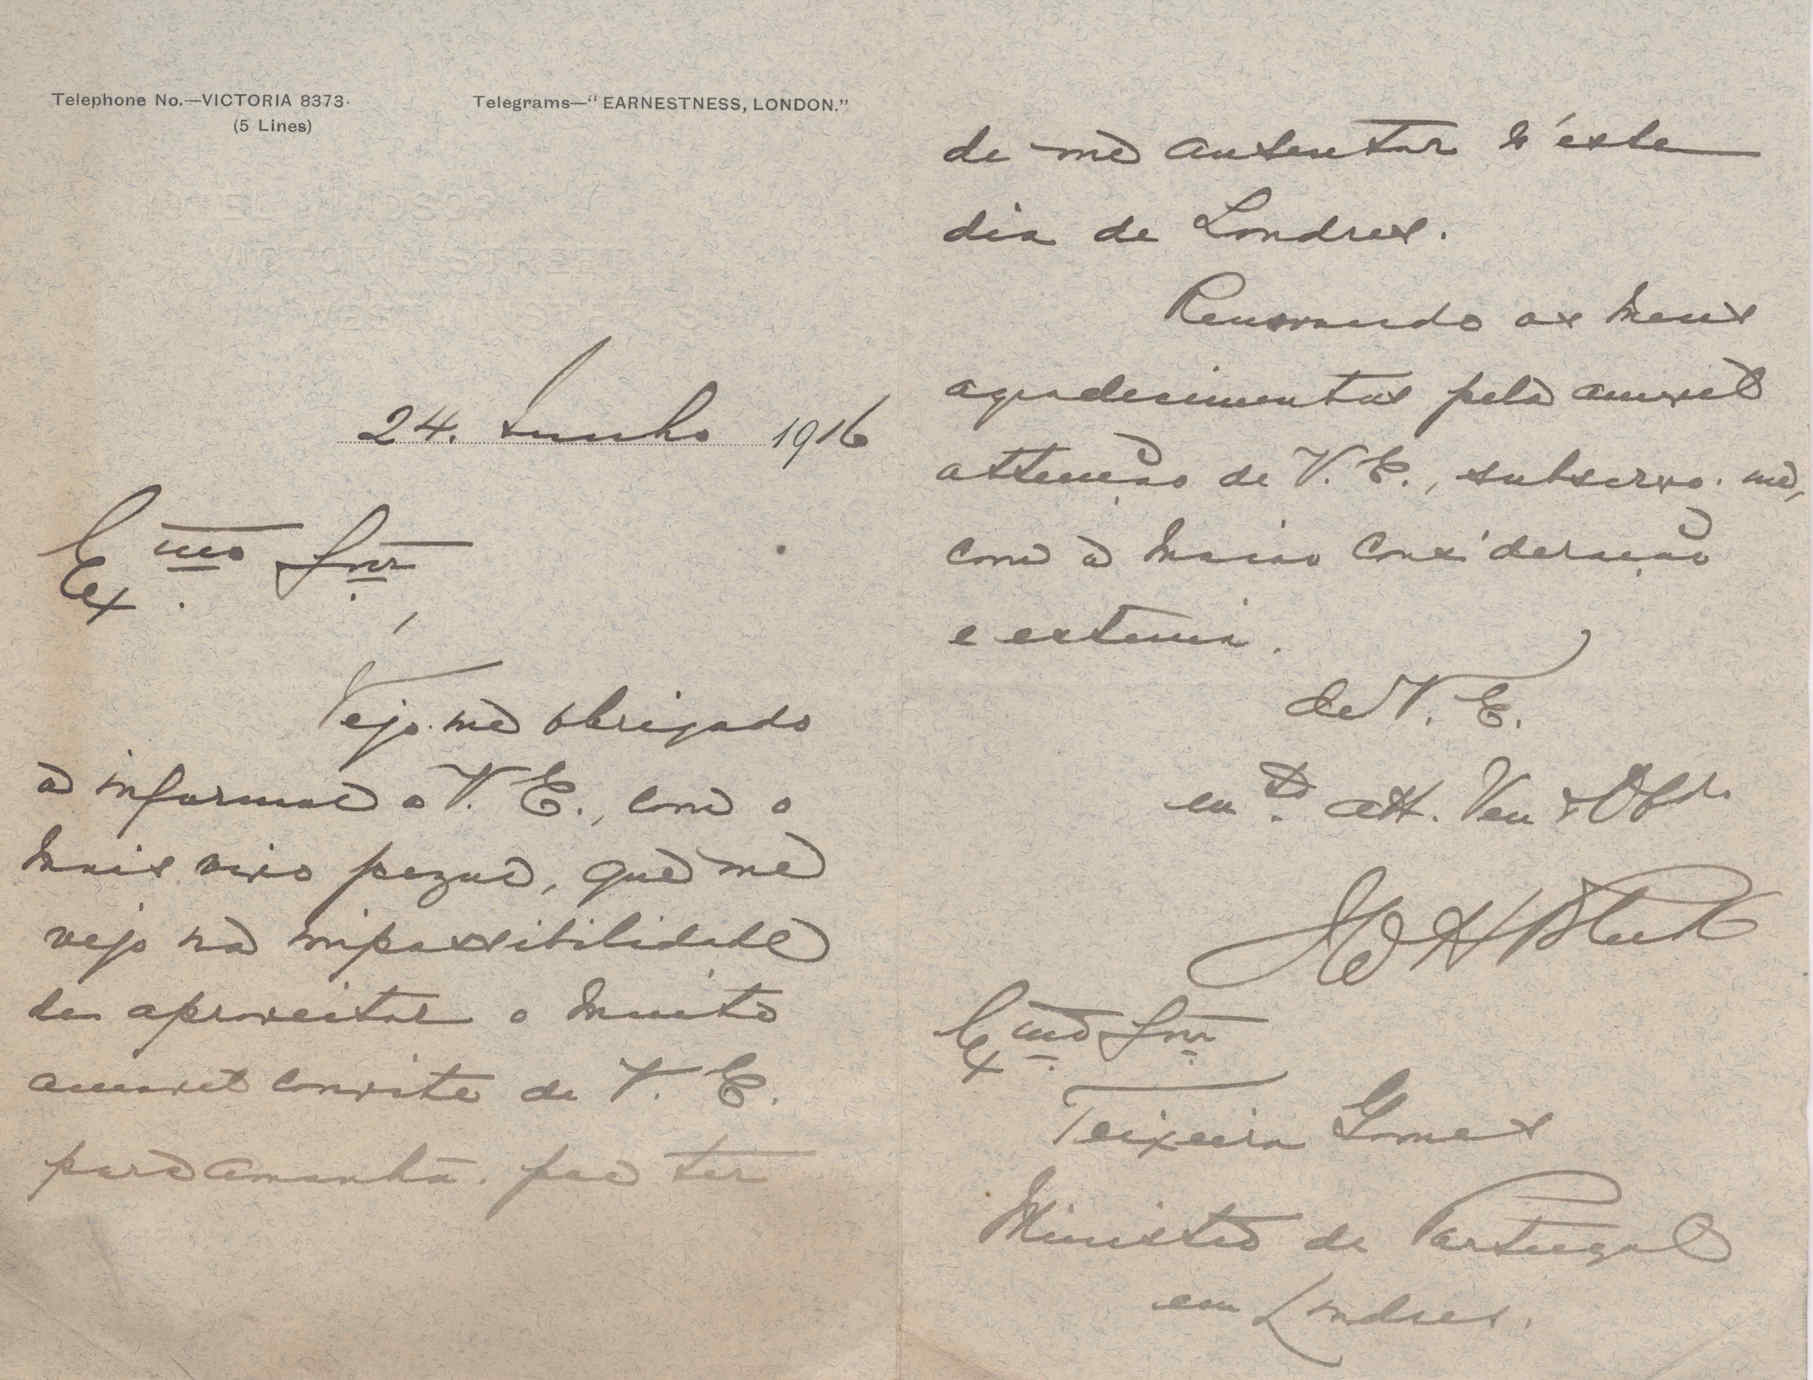 Telephone No.—VICTORIA 8373.
(5 Lines)
Telegrams—"EARNESTNESS, LONDON."
VICTORIA STREET
24. Junho 1916
Exmo Snr.
Vejo-me obrigado
a informar a V. E., com o
mais vivo pezar, que me
vejo na impossibilidade
de aproveitar o muito
amavel convite de V. E.
para amanhã, por ter
de me ausentar n'este
dia de Londres.
Renovando os meus
agradecimentos pela amavel
attenção de V. E., subscrevo-me,
com a maior consideração
e estima.
de V. E.
att. Ven
Exmo Snr.
Teixeira Gomes
Ministro de Portugal
em Londres.